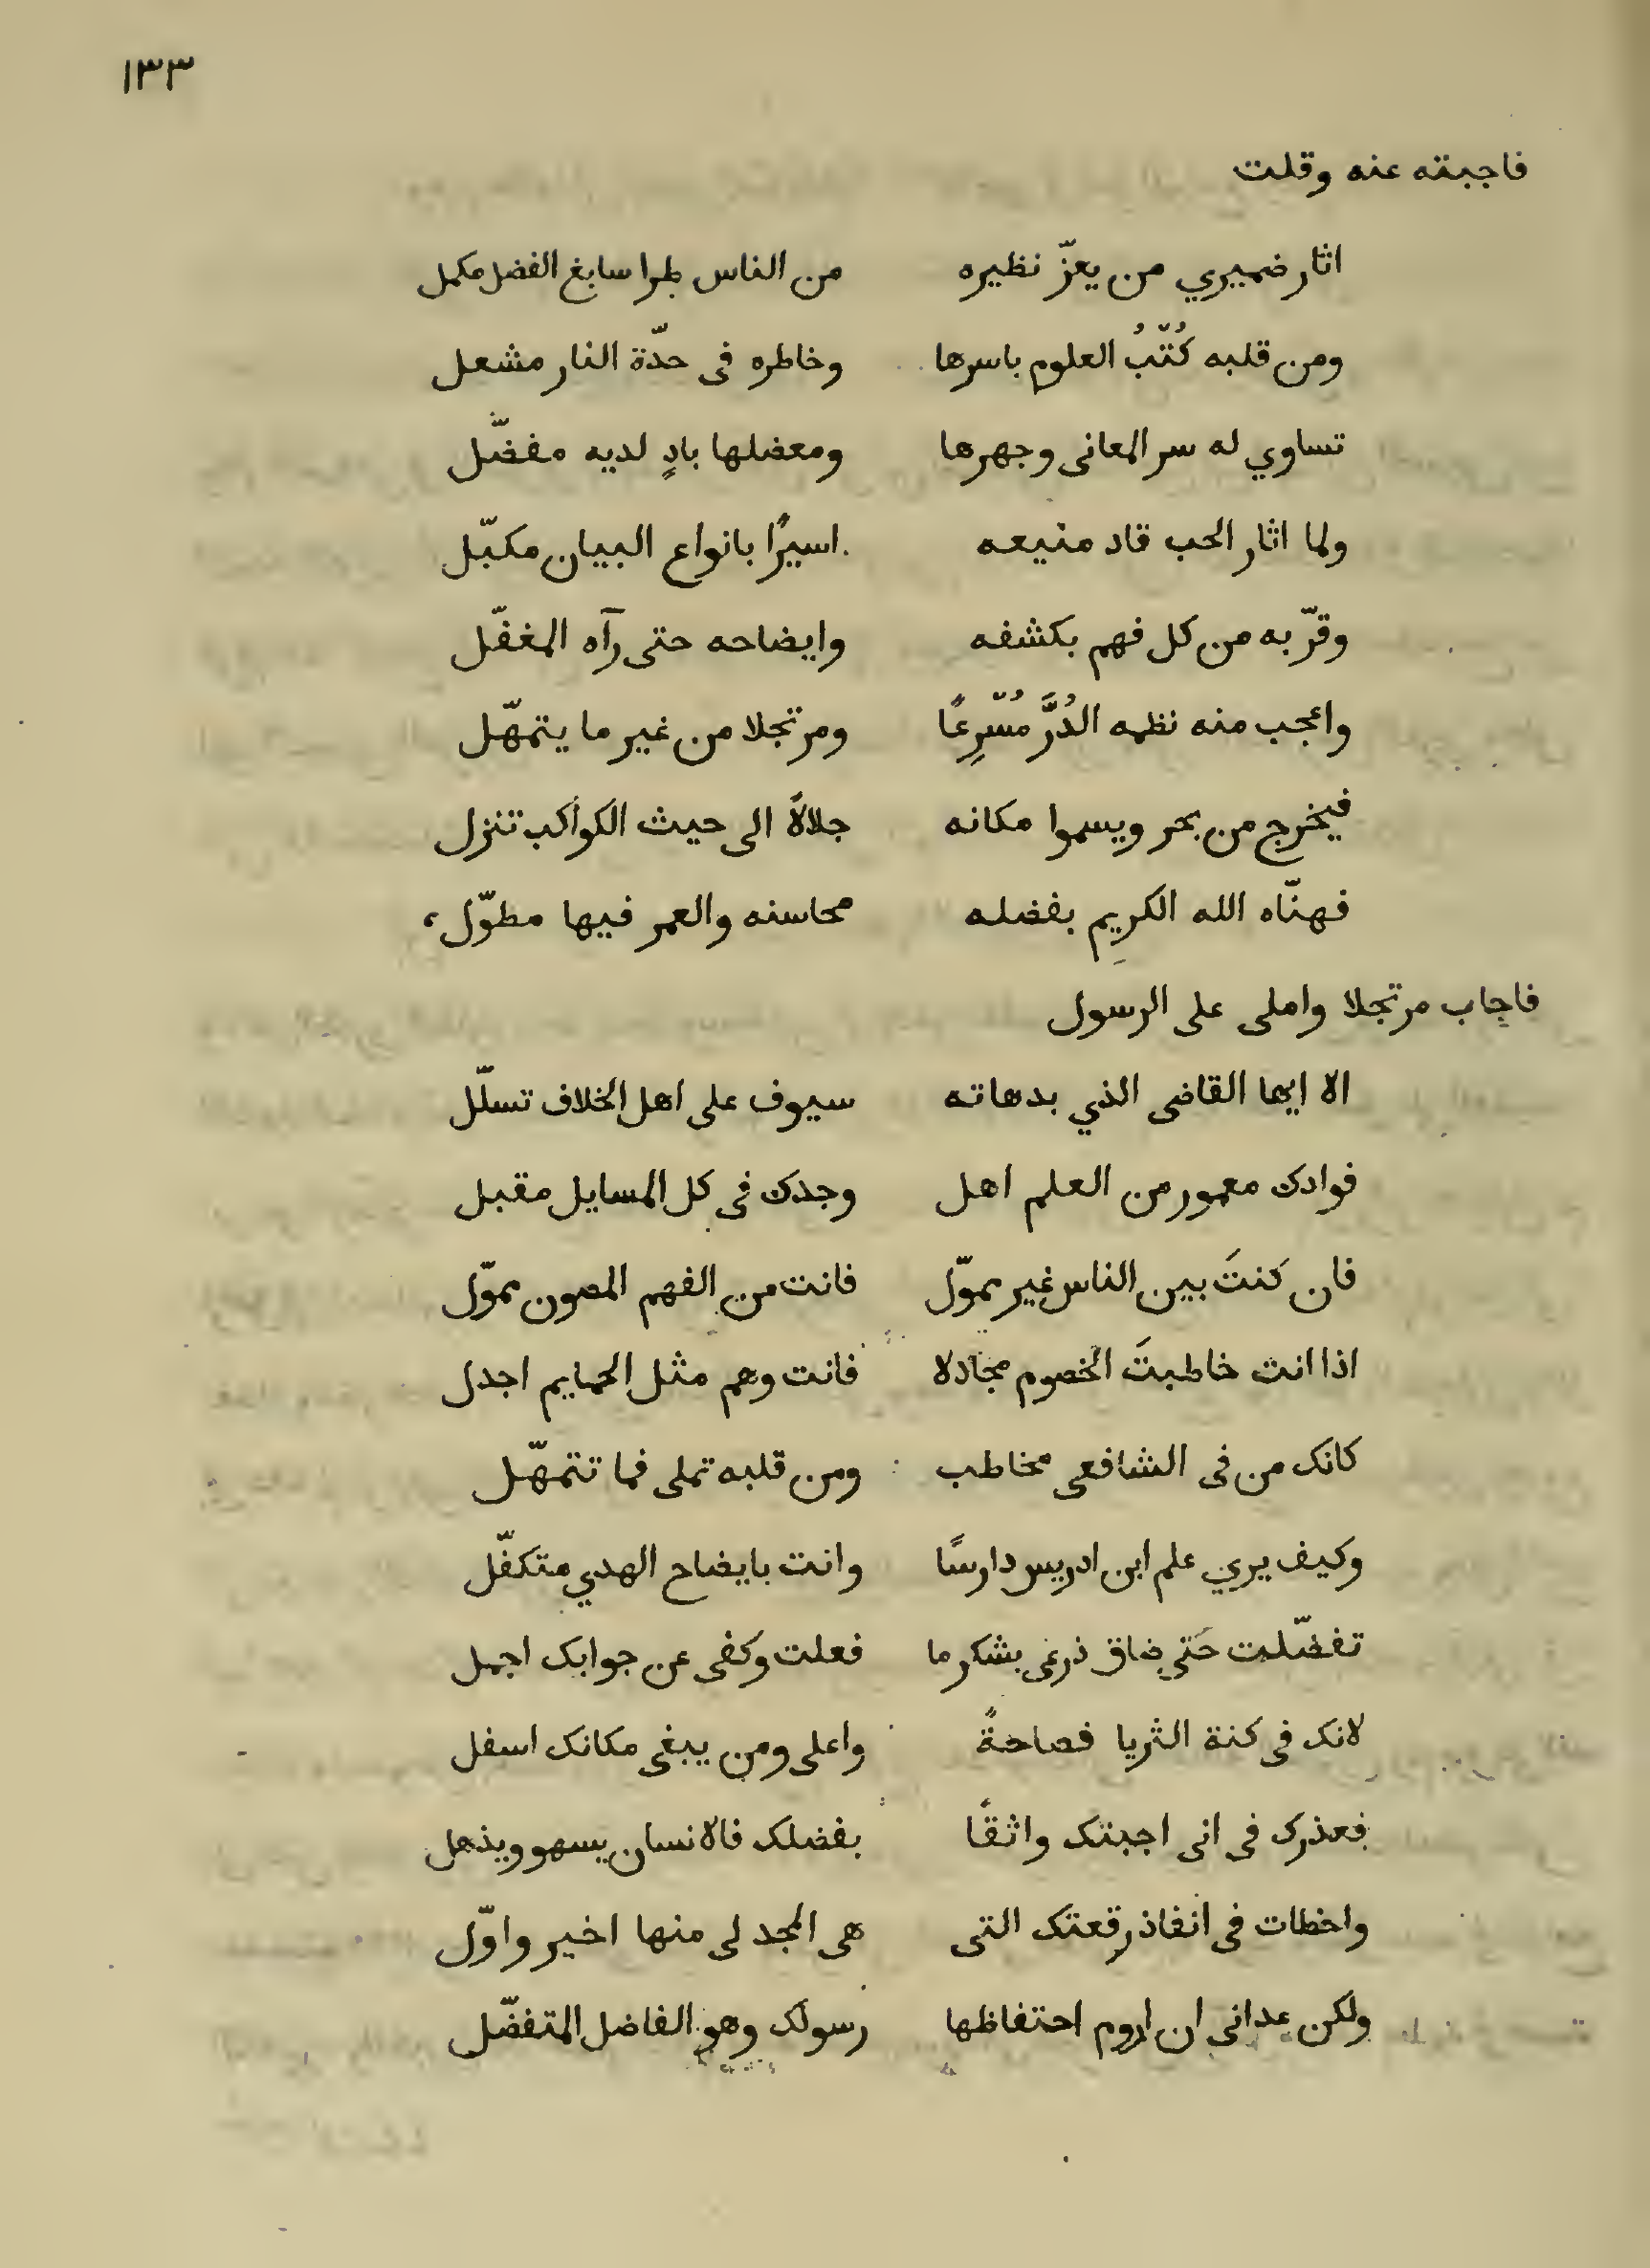 ١٣٣
فاجبته عنه وقلت
اثار ضميري من يعزّ نظيره من الناس طرا سابغ الفضل مكمل
ومن قلبه كُتّبُ العلوم باسرها وخاطره فى حدّة النار مشعل
تساوي له سر المعانى وجهرها ومعضلها بادٍ لديه مفضّل
ولما اثار الحب قاد منيعه اسيرًا بانواع البيان مكبّل
وقرّبه من كل فهم بكشفه وايضاحه حتى رآه المغفّل
واعجب منه نظمه الدُرَّ مُسْرِعًا ومرتجلا من غير ما يتمهّل
فيخرج من بحر ويسموا مكانه جلالاً الى حيث الكواكب تنزل
فهنّاه الله الكريم بفضله محاسنه والعمر فيها مطوّل،
فاجاب مرتجلا واملى على الرسول
الا ايها القاضى الذي بدهاته سيوف على اهل الخلاف تسلّل
فوادك معمور من العلم اهل وجدك فى كل المسايل مقبل
فان كنتَ بين الناس غير مموّل فانت من الفهم المصون مموّل
اذا انت خاطبتَ الخصوم مجادلا فانت وهم مثل الحمايم اجدل
كانك من فى الشافعى مخاطب ومن قلبه تملى فما تتمهّل
وكيف يري علم ابن ادريس دارسًا وانت بايضاح الهدي متكفّل
تفضّلت حَتى ضاق ذرعى بشكر ما فعلت وكفى عن جوابك اجمل
لانك فى كنة الثريا فصاحةً واعلى ومن يبغى مكانك اسفل
فعذرك فى انى اجبتك واثقًا بفضلك فالانسان يسهو ويذهل
واخطات فى انفاذ رقعتك التى هى المجد لى منها اخير واوّل
ولكن عدانى ان اروم احتفاظها رسولك وهو الفاضل المتفضّل